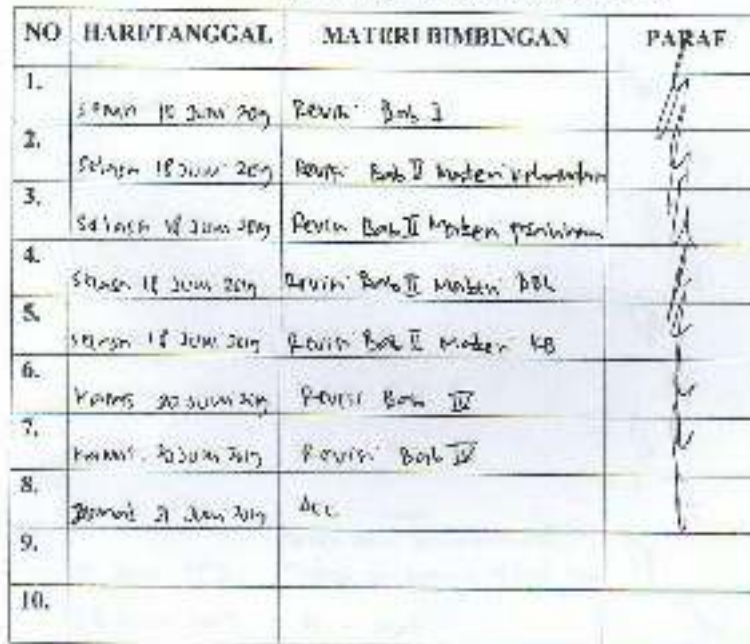 NO HARI/TANGGAL MATERI BIMBINGAN PARAF
1. Senin 10 Juni 2019 Revisi Bab I
2. Selasa 18 Juni 2019 Revisi Bab II Materi kehamilan
3. Selasa 18 Juni 2019 Revisi Bab II Materi persalinan
4. Selasa 18 Juni 2019 Revisi Bab II Materi BBL
5. Selasa 18 Juni 2019 Revisi Bab II Materi KB
6. Kamis 20 Juni 2019 Revisi Bab IV
7. Kamis 20 Juni 2019 Revisi Bab IV
8. 21 Juni 2019 Acc
9.
10.